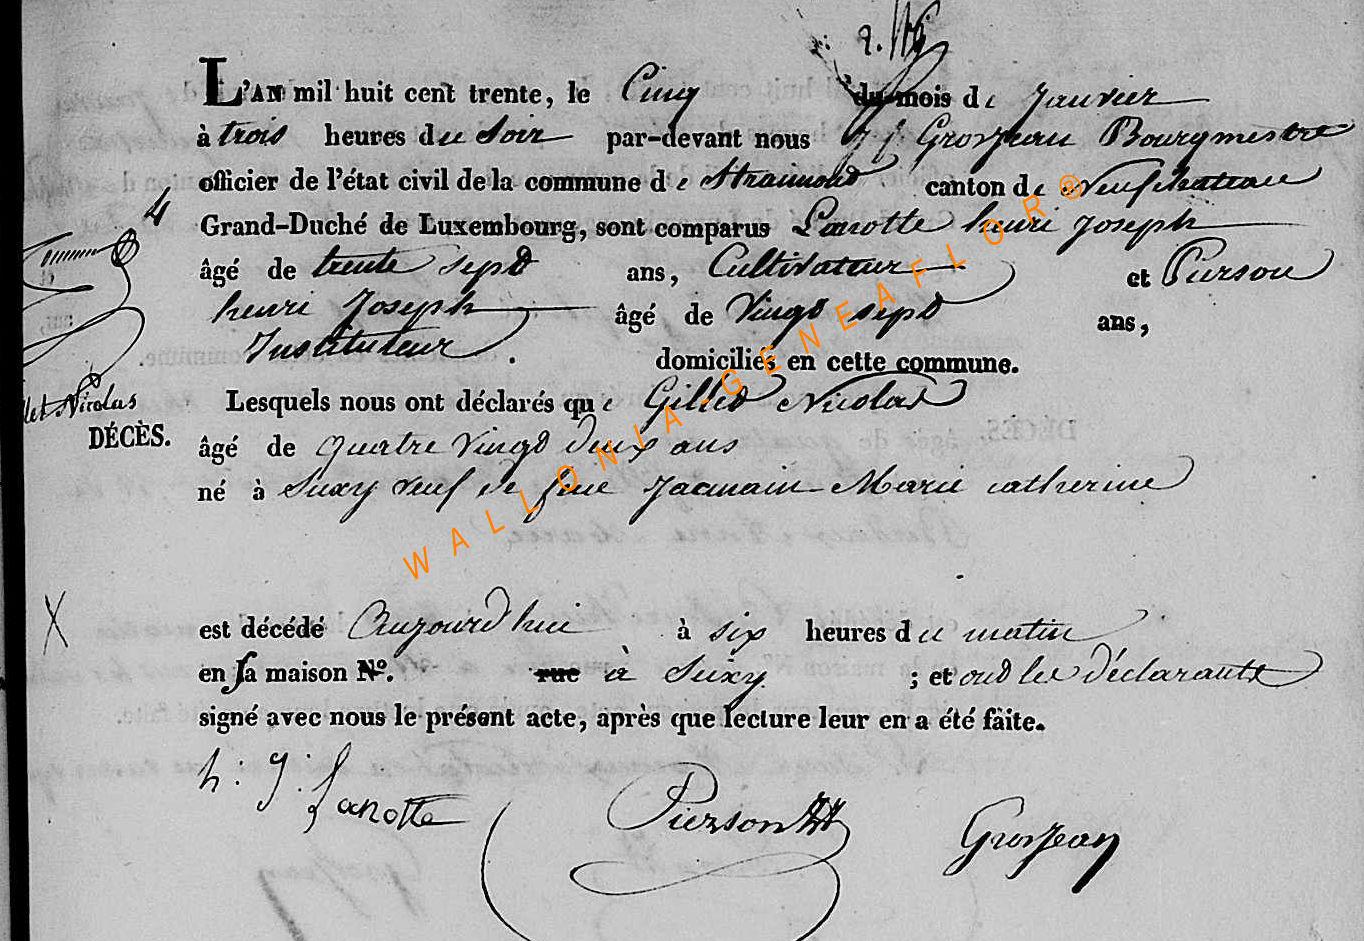 L'AN mil huit cent trente, le Cinq du mois de Janvier
à trois heures du Soir par-devant nous J J Grosjean Bourgmestre
officier de l'état civil de la commune de Straimont canton de Neufchateau
4
Grand-Duché de Luxembourg, sont comparus Lanotte henri joseph
âgé de trente sept ans, Cultivateur et Pierson
henri Joseph âgé de Vingt sept ans,
Instituteur . domiciliés en cette commune.
let Nicolas
DÉCÈS.
Lesquels nous ont déclarés que Gillet Nicolas
âgé de quatre Vingt deux ans
né à Suxy veuf de feue Jacmain Marie catherine
WALLONIA-GENEAFLOR®
X
est décédé Aujourd'hui à six heures du matin
en sa maison N°. rue à Suxy ; et ont les déclarants
signé avec nous le présent acte, après que lecture leur en a été faite.
h : J. Lanotte
Pierson HJ
Grosjean